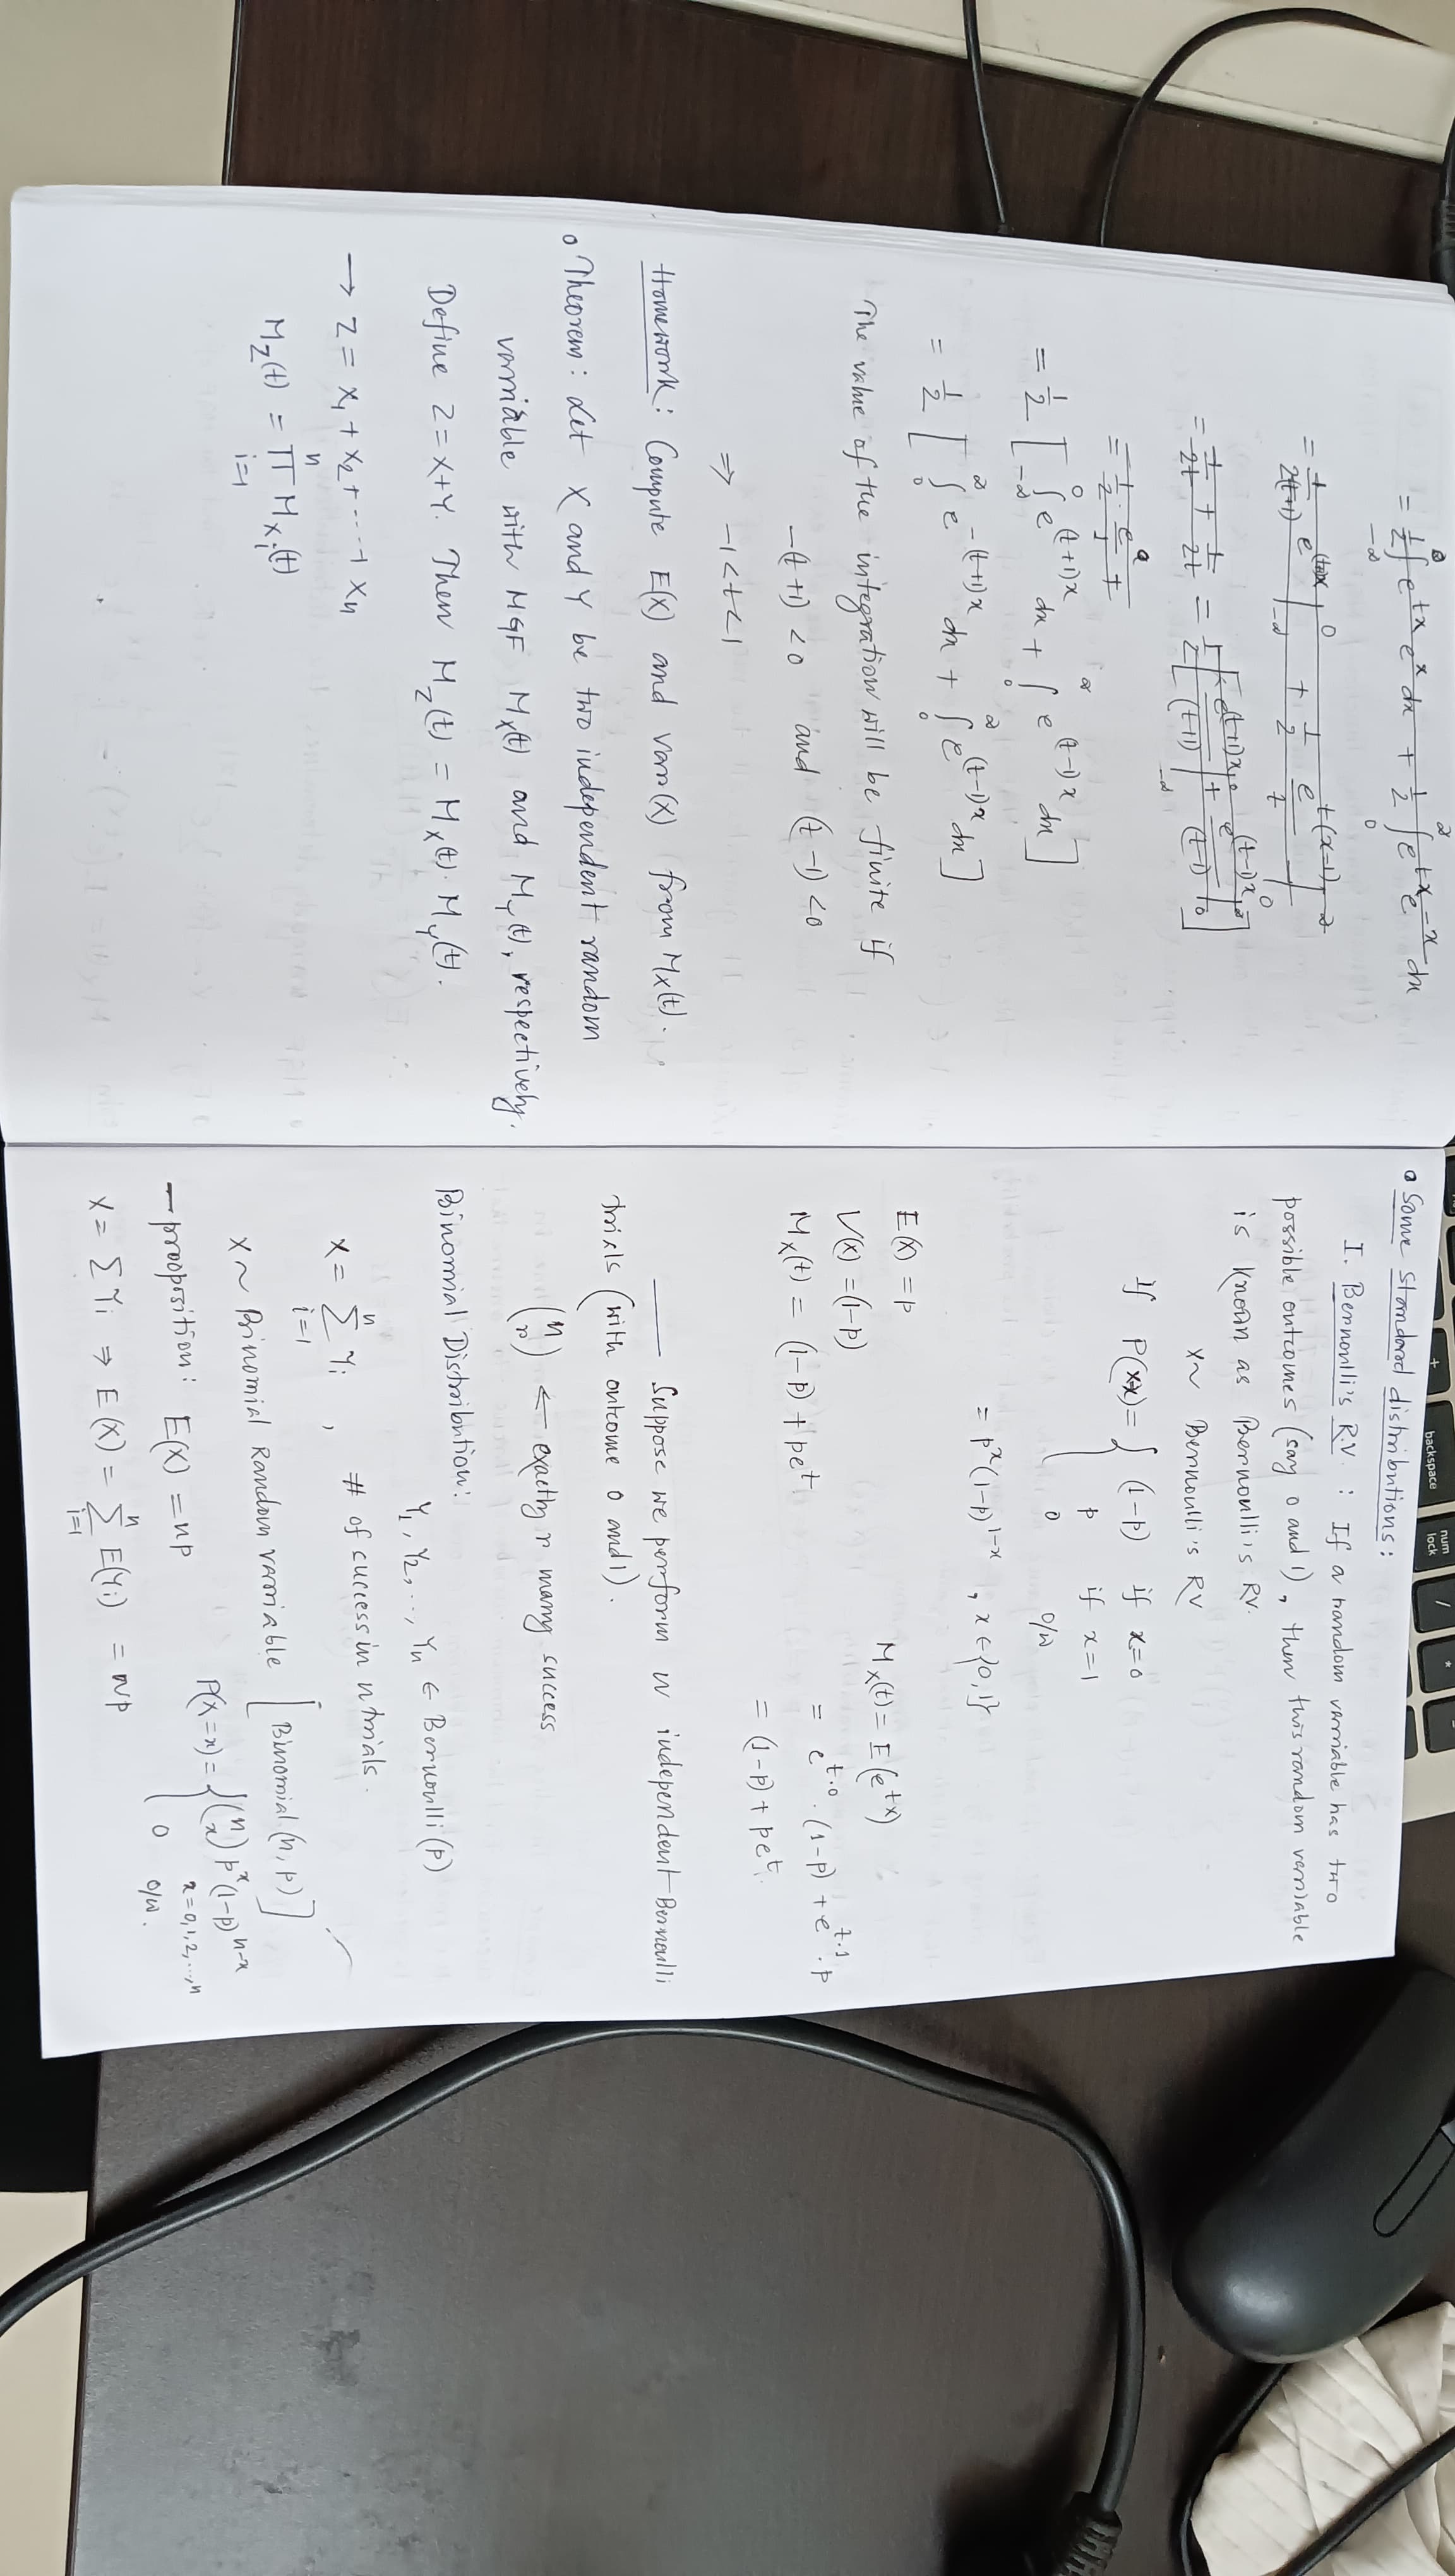 = 1/2 ∫_{-∞}^{0} e^{tx} e^{x} dx + 1/2 ∫_{0}^{∞} e^{tx} e^{-x} dx
= 1/2 [ ∫_{-∞}^{0} e^{(t+1)x} dx + ∫_{0}^{∞} e^{(t-1)x} dx ]
= 1/2 [ ∫_{0}^{∞} e^{-(t+1)x} dx + ∫_{0}^{∞} e^{(t-1)x} dx ]
The value of the integration will be finite if
-(t+1) < 0 and (t-1) < 0
⇒ -1 < t < 1
Homework: Compute E(X) and var(X) from M_X(t).
o Theorem: Let X and Y be two independent random
variable with MGF M_X(t) and M_Y(t), respectively.
Define Z = X+Y. Then M_Z(t) = M_X(t). M_Y(t).
→ Z = X_1 + X_2 + ... + X_n
M_Z(t) = ∏_{i=1}^{n} M_{X_i}(t)
o Some standard distributions:
I. Bernoulli's RV. : If a random variable has two
possible outcomes (say 0 and 1), then this random variable
is known as Bernoulli's RV.
X ~ Bernoulli's RV
if P(X=x) = { (1-p) if x=0
p if x=1
0 o/w
= p^x (1-p)^{1-x}, x ∈ {0,1}
E(X) = p
V(X) = (1-p)
M_X(t) = (1-p) + pe^t
M_X(t) = E(e^{tX})
= e^{t.0} . (1-p) + e^{t.1} . p
= (1-p) + pe^t.
Suppose we perform n independent Bernoulli
trials (with outcome 0 and 1).
(n r) ← exactly r many success
Binomial Distribution:
Y_1, Y_2, ..., Y_n ∈ Bernoulli (p)
X = ∑_{i=1}^{n} Y_i , # of success in n trials.
X ~ Binomial Random variable [Binomial (n, p)]
P(X=x) = { (n x) p^x (1-p)^{n-x}
x = 0,1,2,...,n
0 o/w.
— proposition: E(X) = np
X = ∑ Y_i ⇒ E(X) = ∑_{i=1}^{n} E(Y_i) = np
+
backspace
num
lock
/
*